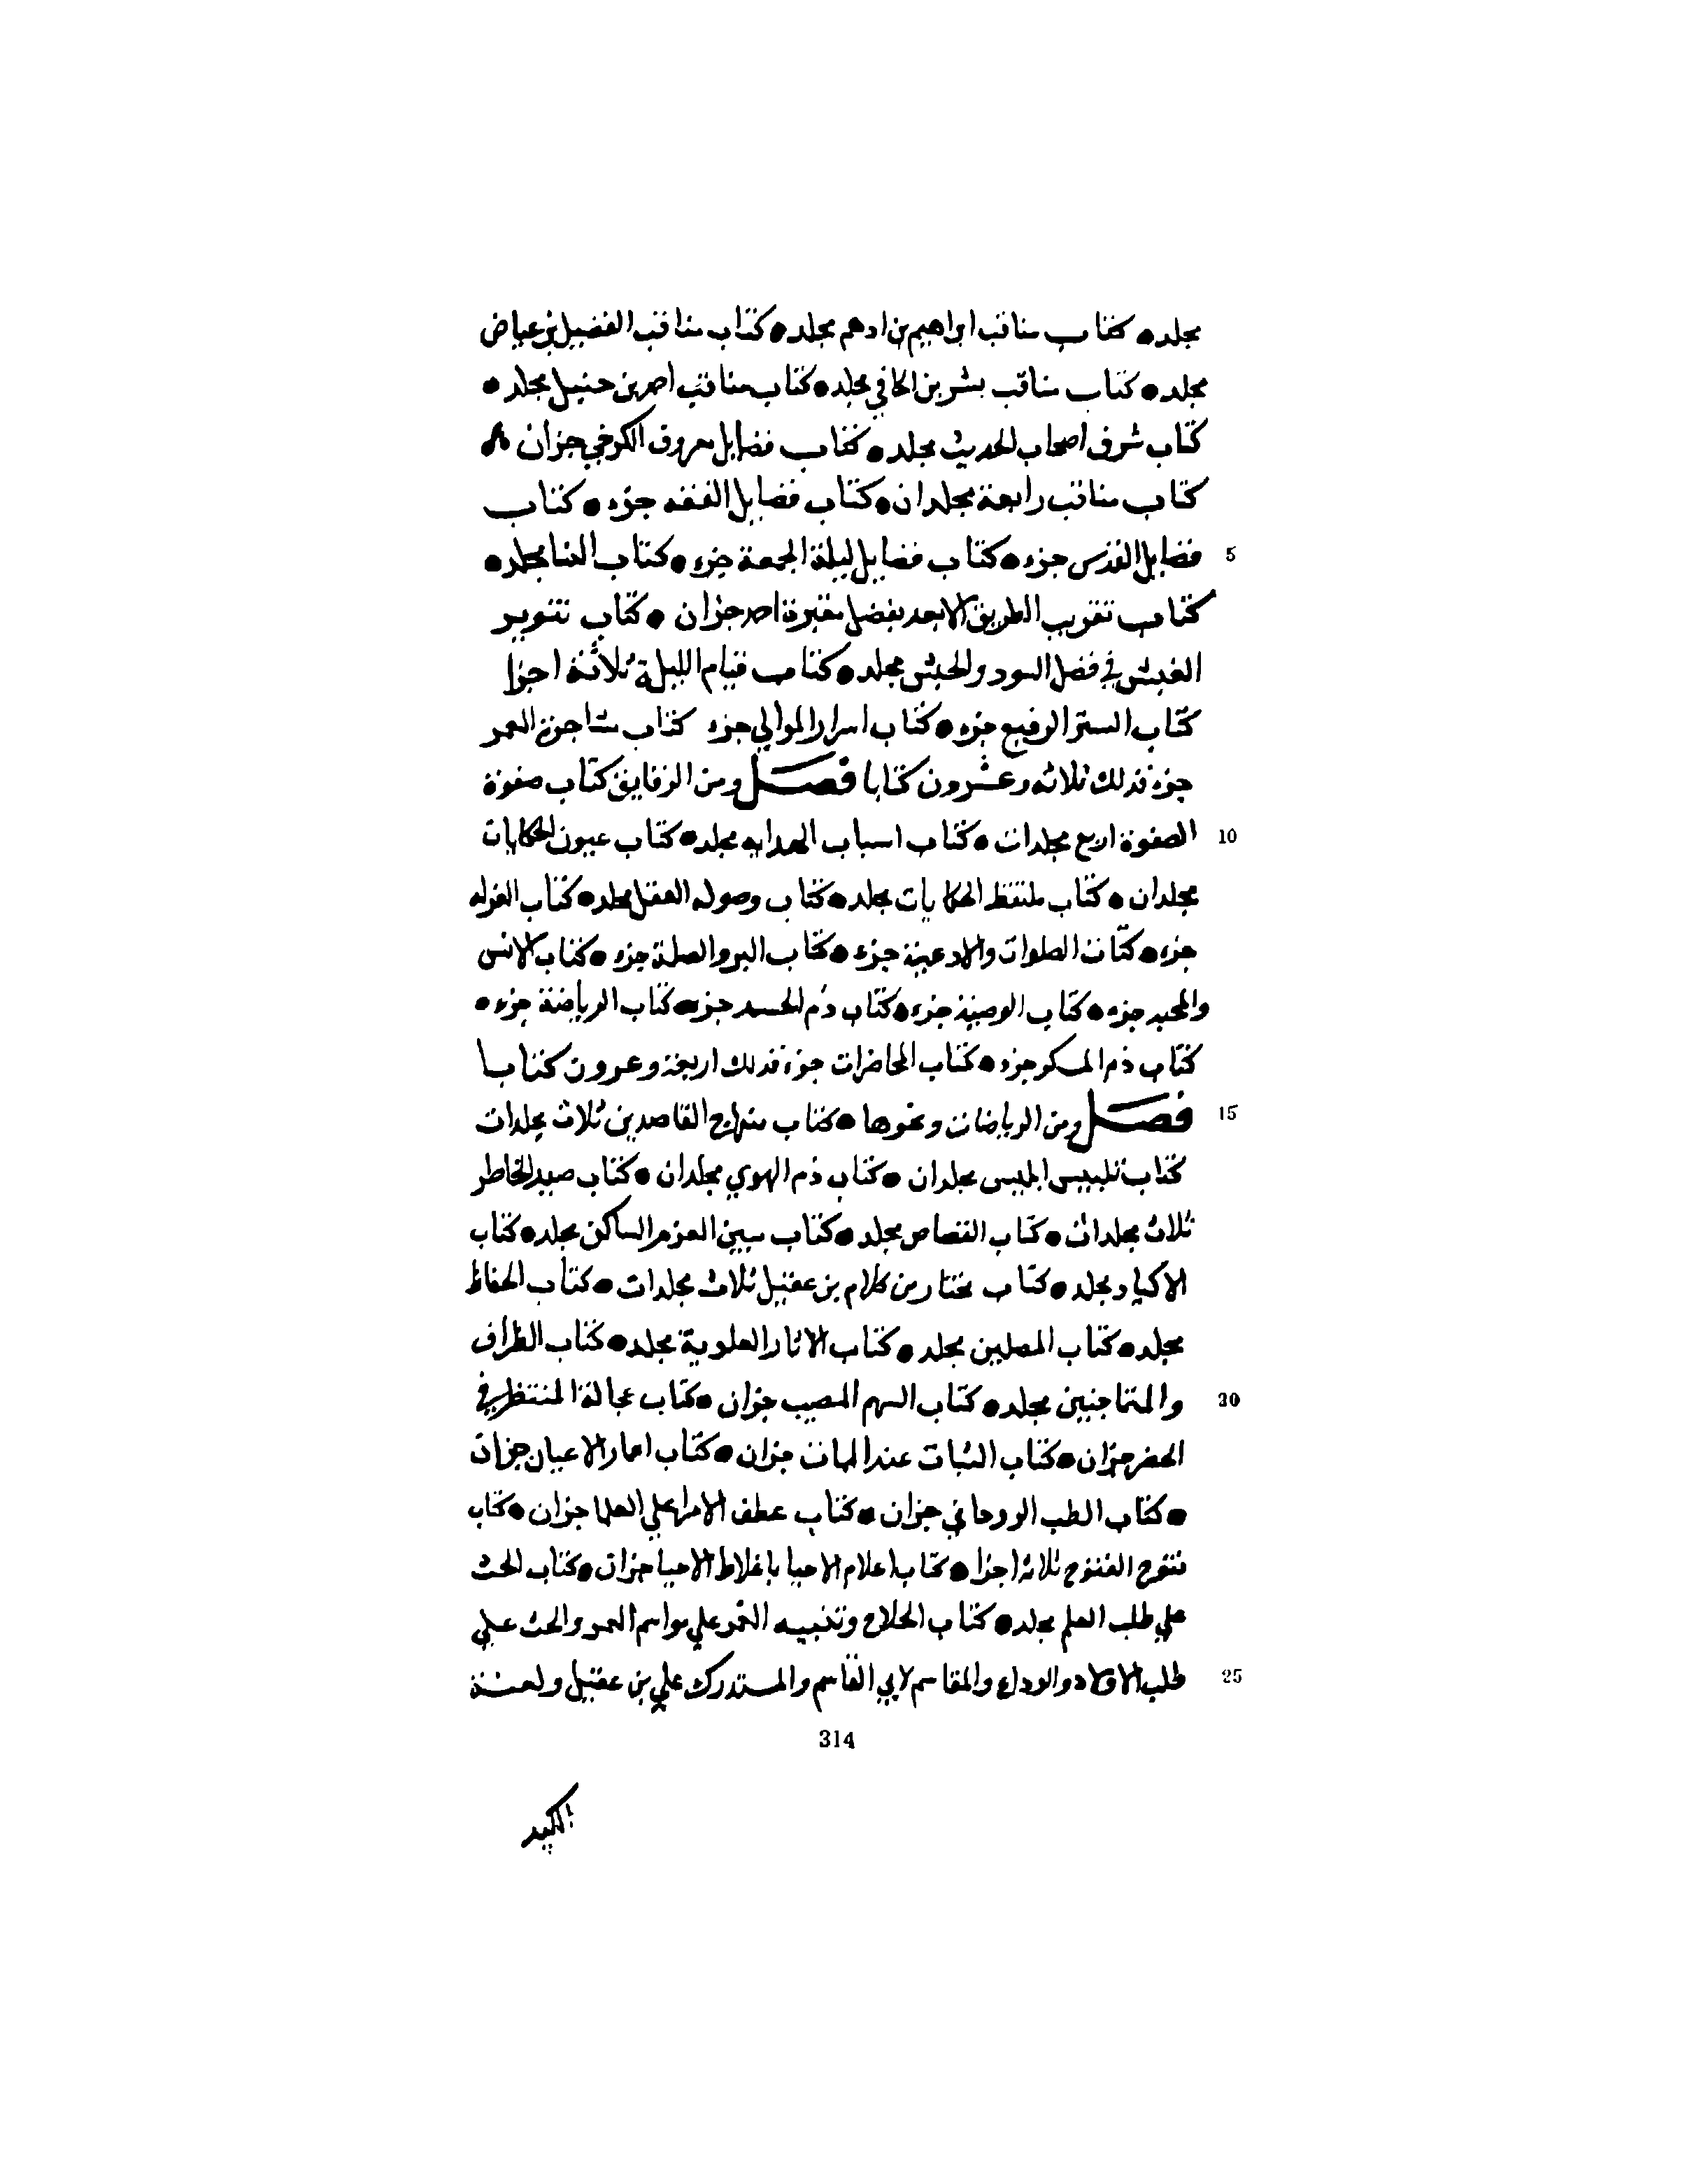 مجلد ● كتاب مناقب ابراهيم بن ادهم مجلد ● كتاب مناقب الفضيل بن عياض
مجلد ● كتاب مناقب بشر بن الحافي مجلد ● كتاب مناقب احمد بن حنبل مجلد ●
كتاب شرف اصحاب الحديث مجلد ● كتاب فضايل معروف الكرخي جزان
كتاب مناقب رابعة مجلدان ● كتاب فضايل الفقه جزء ● كتاب
5 فضايل القدس جزء ● كتاب فضايل ليلة الجمعة جزء ● كتاب مجلد ●
كتاب تقريب الطريق الابعد بفضل مقبرة احمد جزان ● كتاب تنوير
الغبش في فضل السود والحبش مجلد ● كتاب قيام الليلة ثلاثة اجزا
كتاب الستر الرفيع جزء ● كتاب اسرار الموالي جزء كتاب العمر
جزء فذلك ثلاثه وعشرون كتابا فصل ومن الرقايق كتاب صفوة
10 الصفوة اربع مجلدات ● كتاب اسباب الهدايه مجلد ● كتاب عيون الحكايات
مجلدان ● كتاب ملتقط الحكايات مجلد ● كتاب وصوله العقل مجلد ● كتاب العزله
جزء ● كتاب الصلوات والادعية جزء ● كتاب البر والصلة جزء ● كتاب الانس
والمحبه جزء ● كتاب الوصية جزء ● كتاب ذم الحسد جزء ● كتاب الرياضة جزء ●
كتاب ذم المسكر جزء ● كتاب المحاضرات جزء فذلك اربعة وعرون كتابا
15 فصل ومن الرياضات ونحوها ● كتاب منهاج القاصدين ثلاث مجلدات
كتاب تلبيس ابليس مجلدان ● كتاب ذم الهوي مجلدان ● كتاب صيد الخاطر
ثلاث مجلدات ● كتاب القصاص مجلد ● كتاب العزم الساكن مجلد ● كتاب
مجلد ● كتاب مختار من كلام بن عقيل ثلاث مجلدات ● كتاب الحفاظ
مجلد ● كتاب المصلين مجلد ● كتاب الاثار العلوية مجلد ● كتاب الظراف
20 والمتماجنين مجلد ● كتاب السهم المصيب جزان ● كتاب عجالة المنتظر في
الخضر جزان ● كتاب الثبات عند الممات جزان ● كتاب اعمار الاعيان جزان
● كتاب الطب الروحاني جزان ● كتاب عطف الامرا علي العلما جزان ● كتاب
فتوح الفتوح ثلاثه اجزا ● كتاب اعلام الاحيا باغلاط الاحيا جزان ● كتاب الحث
علي طلب العلم مجلد ● كتاب الحلاج وتنبيه الغمر علي مواسم العمر والحث علي
25 طلب الاولاد والوداع والمقاسم لابي القاسم والمستدرك علي بن عقيل ولفتة
314
الكبد